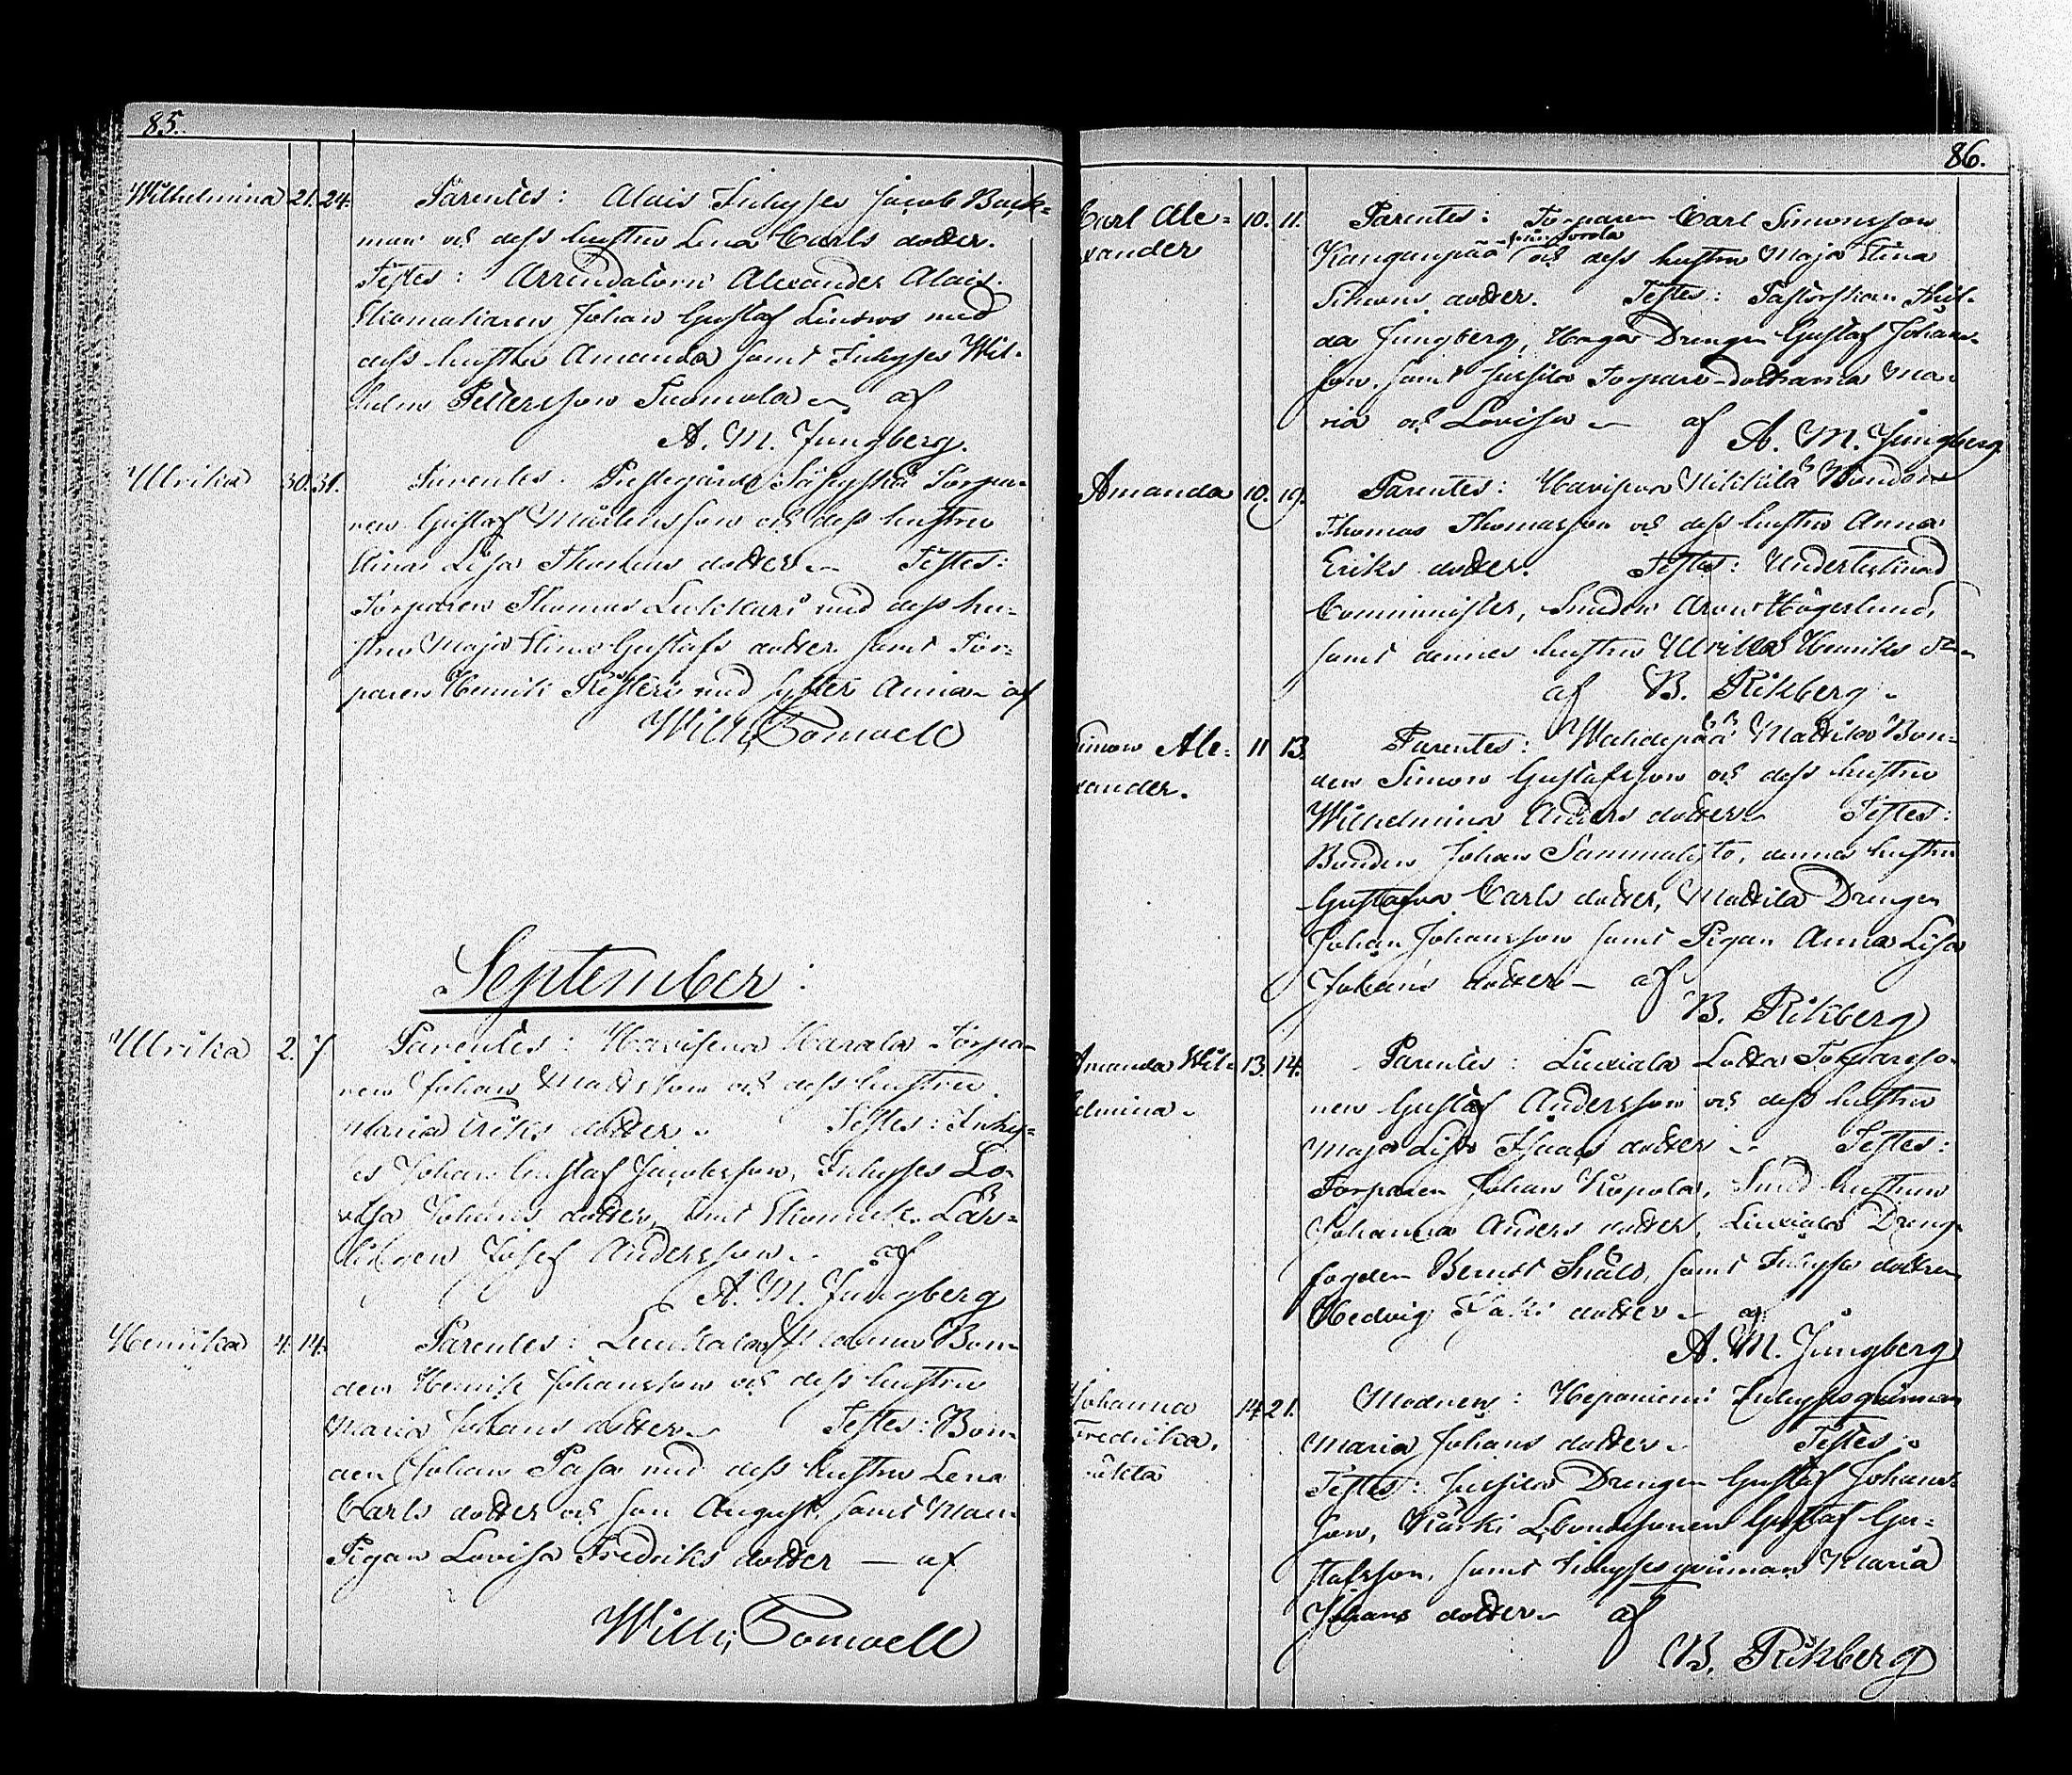 85.
Wilhelmina 21. 24. Parentes: Alais Inhyses Jacob Back=
man och dess hustru Lena Carls dotter.
Testes: Arrendatorn Alexander Alais.
Skomakaren Johan Gustaf Lindros med
dess hustru Amanda samt Inhyses Wil-
helm Pettersson Tuomola af
A. M. Jungberg.
Ulrika 30. 31. Parentes: Prestgårds Torpa-
ren Gustaf Mårtensson och dess hustru
Stina Lisa Thomas dotter Testes:
Torparen Thomas Lukkari med dess hu-
stru Maja Stina Gustafs dotter samt Tor-
paren Henrik med syster Anna af
Willh,
September:
Ulrika 2. 7 Parentes: Havisena Harala Torpa-
ren Johan Mattsson och dess hustru
Maria Eriks dotter. Testes: Inhy=
ses Johan Gustaf Jacobsson, Inhyses Lo-
visa Johans dotter, samt Skomak. Lär-
Josef Andersson af
A. M. Jungberg
Henrika 4. 14. Parentes: Bon-
den Henrik Johansson och dess hustru
Maria Johans dotter Testes: Bon-
den Johan Pasa med dess hustru Lena
Carls dotter och son August, samt
Pigan Lovisa Fredriks dotter — af
Willh,
86.
Carl Ale= 10. 11. Parentes: Torparen Carl Simonsson
xander Kanganpää och dess hustru Maja Stina
Simons dotter. Testes: Pastorskan Hil-
da Jungberg, Haga Drengen Gustaf Johans-
son, samt Jussila Torpare-döttrarna Ma-
ria och Lovisa af A. M. Jungberg
Amanda 10. 19. Parentes: Havisena Nikkilä Bonden
Thomas Thomasson och dess hustru Anna
Eriks dotter. Testes: Undertecknad
Comminister, Smeden Aron Högerlund,
samt dennes hustru Ulrika Henriks dr
af B. Rikberg
Simon Ale= 11 13. Parentes: Wahdepää Mattila Bon-
xander. den Simon Gustafsson och dess hustru
Wilhelmina Anders dotter Testes:
Bonden Johan Sammalisto, dennes hustru
Gustafva Carls dotter, Mattila Drengen
Johan Johansson samt Pigan Anna Lisa
Johans dotter af
B. Rikberg
Amanda Wil= 13. 14. Parentes: Linxiala Lotta Torpareso-
helmina. nen Gustaf Andersson och dess hustru
Maja Lisa Isaacs dotter Testes:
Torparen Johan Kopola, Smed-hustrun
Johanna Anders dotter, Linxiala Dreng-
fogden Berndt Ståls, samt Inhyses dottren
Hedvig dotter af
A. M. Jungberg
Johanna 14 21. Modren: Heponiemi Inhysesqvinnan
Fredrika, Maria Johans dotter Testes
oäkta Testes: Jussila Drengen Gustaf Johans-
son, Kurki L. bondesonen Gustaf Gu-
stafsson, samt Inhysesqvinnan Maria
Johans dotter af
B. Rikberg